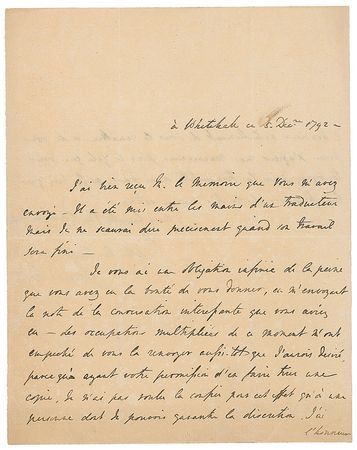 à Whitehall ce 8. Decre 1792 —
J'ai bien reçu M. le Memoire que vous m'avez
envoyé — Il a été mis entre les mains d'un traducteur
mais je ne saurai dire precisement quand son travail
sera fini —
Je vous ai une Obligation infinie de la peine
que vous avez eu la bonté de vous donner, en m'envoyant
la note de la conversation interessante que vous aviez
eu — des occupations multipliées de ce moment m'ont
empeché de vous la renvoyer aussitôt que j'aurois desiré,
parcequ'en ayant votre permission d'en faire tirer une
copie, Je n'ai pas voulu la confier pour cet effet qu'à une
personne dont je pouvois garantir la discretion. J'ai
l'honneur